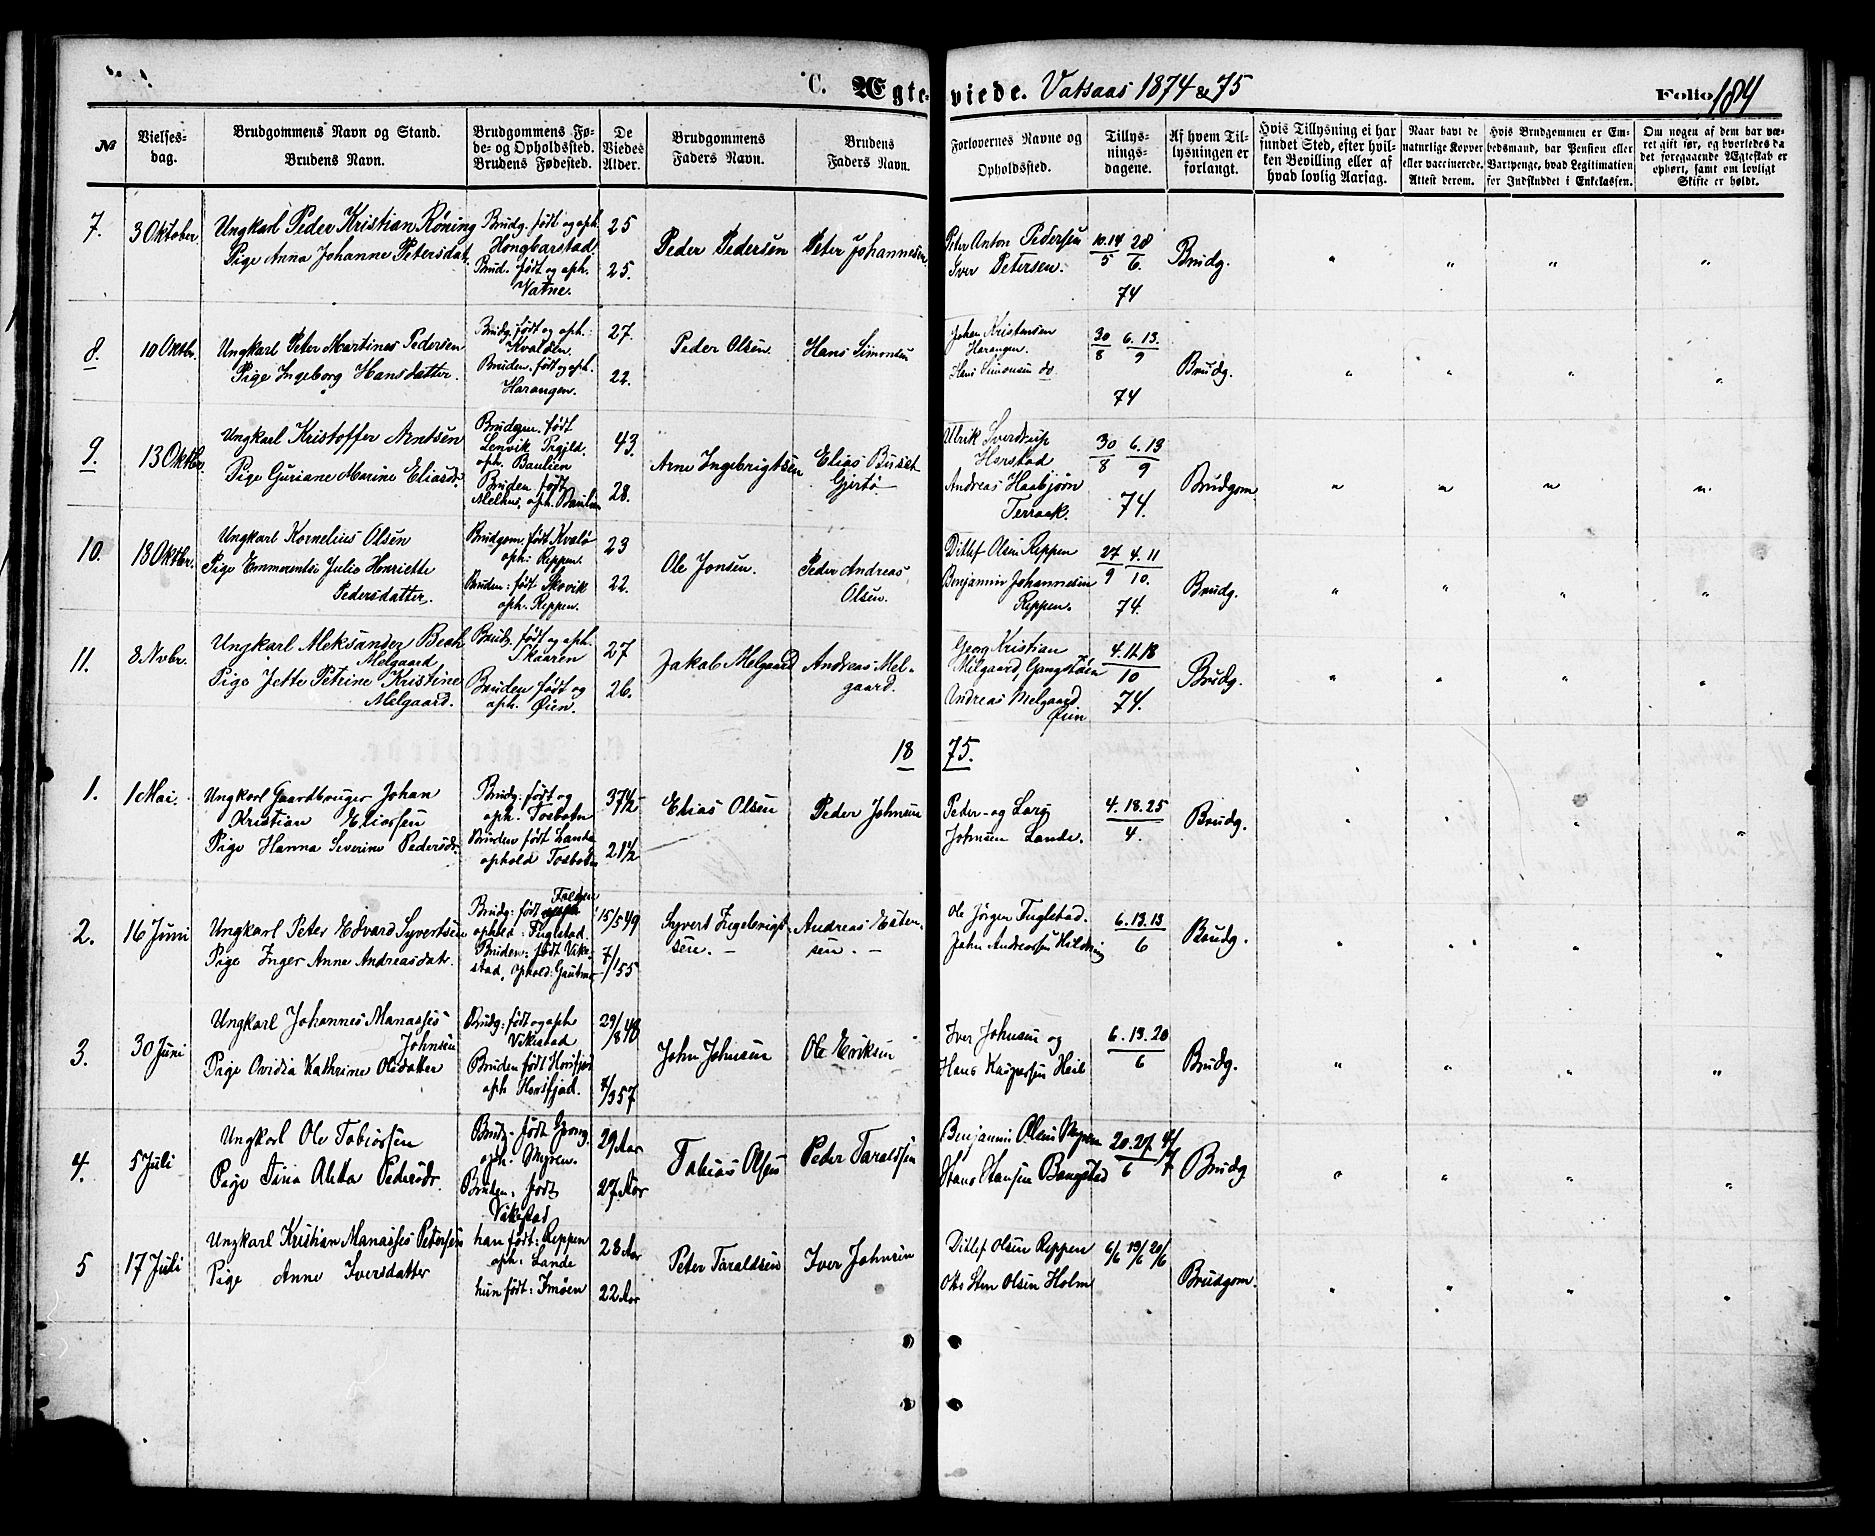 C. Ægteviede. Vatsaas 1874 & 75
Folio 184
№
Vielses-
dag.
Brudgommens Navn og Stand.
Brudens Navn.
Brudgommens Fø-
de- og Opholdssted.
Brudens Fødested.
De
Viedes
Alder.
Brudgommens
Faders Navn.
Brudens
Faders Navn.
Forlovernes Navne og
Opholdssted.
Tillys-
nings-
dagene.
Af hvem Til-
lysningen er
forlangt.
Hvis Tillysning ei har
fundet Sted, efter hvil-
ken Bevilling eller af
hvad lovlig Aarsag.
Naar havt de
naturlige Kopper
eller vaccinerede.
Attest derom.
Hvis Brudgommen er Em-
bedsmand, har Pension eller
Vartpenge, hvad Legitimation
for Indskuddet i Enkekassen.
Om nogen af dem har væ-
ret gift før, og hvorledes da
det foregaaende Ægteskab er
ophørt, samt om lovligt
Skifte er holdt.
7. 3 Oktober
Ungkarl Peder Kristian Røning
Pige Anna Johanne Petersdat.
Brudg. født og oph.
Brud. født og oph.
Vatne.
25
25.
Peder Pedersen
Peter Johannesen
Peter Anton Pedersen
Iver Petersen.
10.14 28
5 6.
74
Brudg.
8. 10 Oktbr.
Ungkarl Peter Martines Pedersen
Pige Ingeborg Hansdatter.
Brudg. født og oph.
Kvalden.
Bruden. født og oph.
Harangen.
27.
22.
Peder Olsen
Hans Simonsen
Johan Kristensen
Harangen.
Hans Simonsen do
30 6.13.
8 9
74
Brudg.
9. 13 Oktbr.
Ungkarl Kristoffer Arntsen
Pige Guriane Marine Eliasdr.
Brudgm. født
Lenvik Prgjld.
oph. Baulien
Bruden. født
Melhus, oph. Baulien
43.
28.
Arne Ingebrigtsen
Elias Buset
Gjertø
Ulrik Sverdrup
Harstad
Andreas Haabjørn
Terraak.
30 6.13
8 9
74.
Brudgom
10. 18 Oktbr.
Ungkarl Kornelius Olsen
Pige Emmerentse Julie Henriette
Pedersdatter.
Brudgom. født Kvalø
oph: Reppen.
Bruden: født Skovik
oph. Reppen.
23
22.
Ole Jonsen.
Peder Andreas
Olsen.
Ditlef Olsen Reppen
Benjamin Johannesen
Reppen.
27 4.11
9 10.
74.
Brudg.
11. 8 Nvbr.
Ungkarl Aleksander Beah
Melgaard
Pige Jette Petrine Kristine
Melgaard.
Brudg. født og oph.
Skaaren
Bruden født og
oph. Øien.
27
26.
Jakob Melgaard
Andreas Mel-
gaard.
Georg Kristian
Melgaard, Gangstøen
Andreas Melgaard
Øien
4.11.18
10
74.
Brudg.
18 75.
1. 1 Mai.
Ungkarl Gaardbruger Johan
Kristian Eliassen
Pige Hanna Severine Pedersdr.
Brudg: født og
oph. Tosbotn
Bruden født Lande
ophold Tosbotn
37½
21½
Elias Olsen
Peder Johnsen
Peder- og Lars
Johnsen Lande.
4.18.25
4.
Brudg.
2. 16 Juni
Ungkarl Peter Edvard Syvertsen
Pige Inger Anne Andreasdatr.
Brudg: født
ophld: Fuglstad
Bruden: født Vike-
stad, ophold:
15/5 49
7/1 55
Syvert Ingebrigt-
sen. —
Andreas Esten-
sen. —
Ole Jørgen Fuglstad.
John Andreassen Hildring
6.13.13
6
Brudg.
3. 30 Juni
Ungkarl Johannes Manasses
Johnsen
Pige Ovidia Kathrine Olsdatter
Brudg: født og oph
Vikestad
Bruden født Horsfjord
oph Horsfjord.
29/8 48
/3 57
John Johnsen
Ole Eriksen
Iver Johnsen og
Hans Kaspersen Heil
6.13.20
6
Brudg.
4. 5 Juli
Ungkarl Ole Tobiassen
Pige Sina Aletta Pedersdr.
Brudg. født Grong.
oph. Myren.
Bruden. født
Vikestad
29 Aar
27. Aar
Tobias Olsen
Peder Taraldsen
Benjamin Olsen Myren
Hans Hansen Bangstad
20.27 4/7
6
Brudg.
5 17 Juli
Ungkarl Kristian Manasses Petersen
Pige Anne Iversdatter
han født: Reppen
oph: Lande
hun født: Imøen
28 Aar
22 Aar
Peter Taraldsen
Iver Johnsen
Ditlef Olsen Reppen
Olsen Holm
6/6 13/6 20/6
Brudgom.